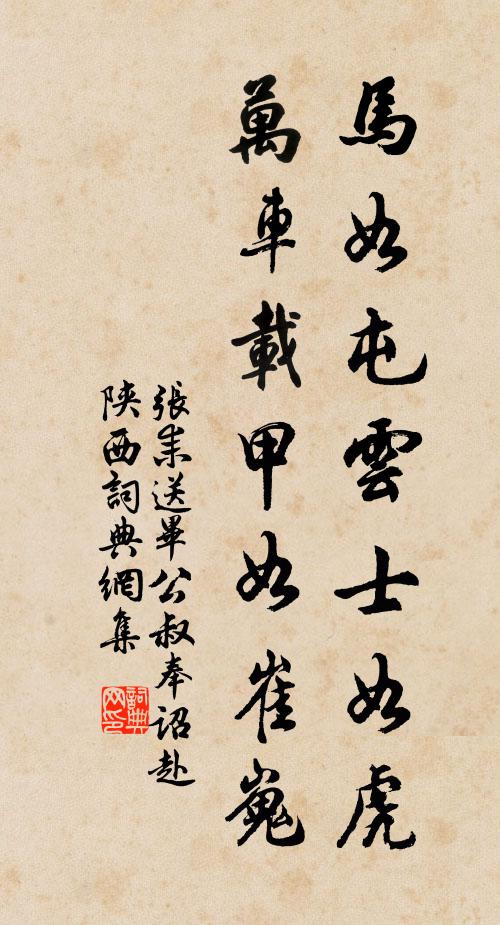 馬如屯雲士如虎
萬車載甲如崔嵬
張耒送畢公叔奉詔赴
陝西詞典網集
詞典
网印